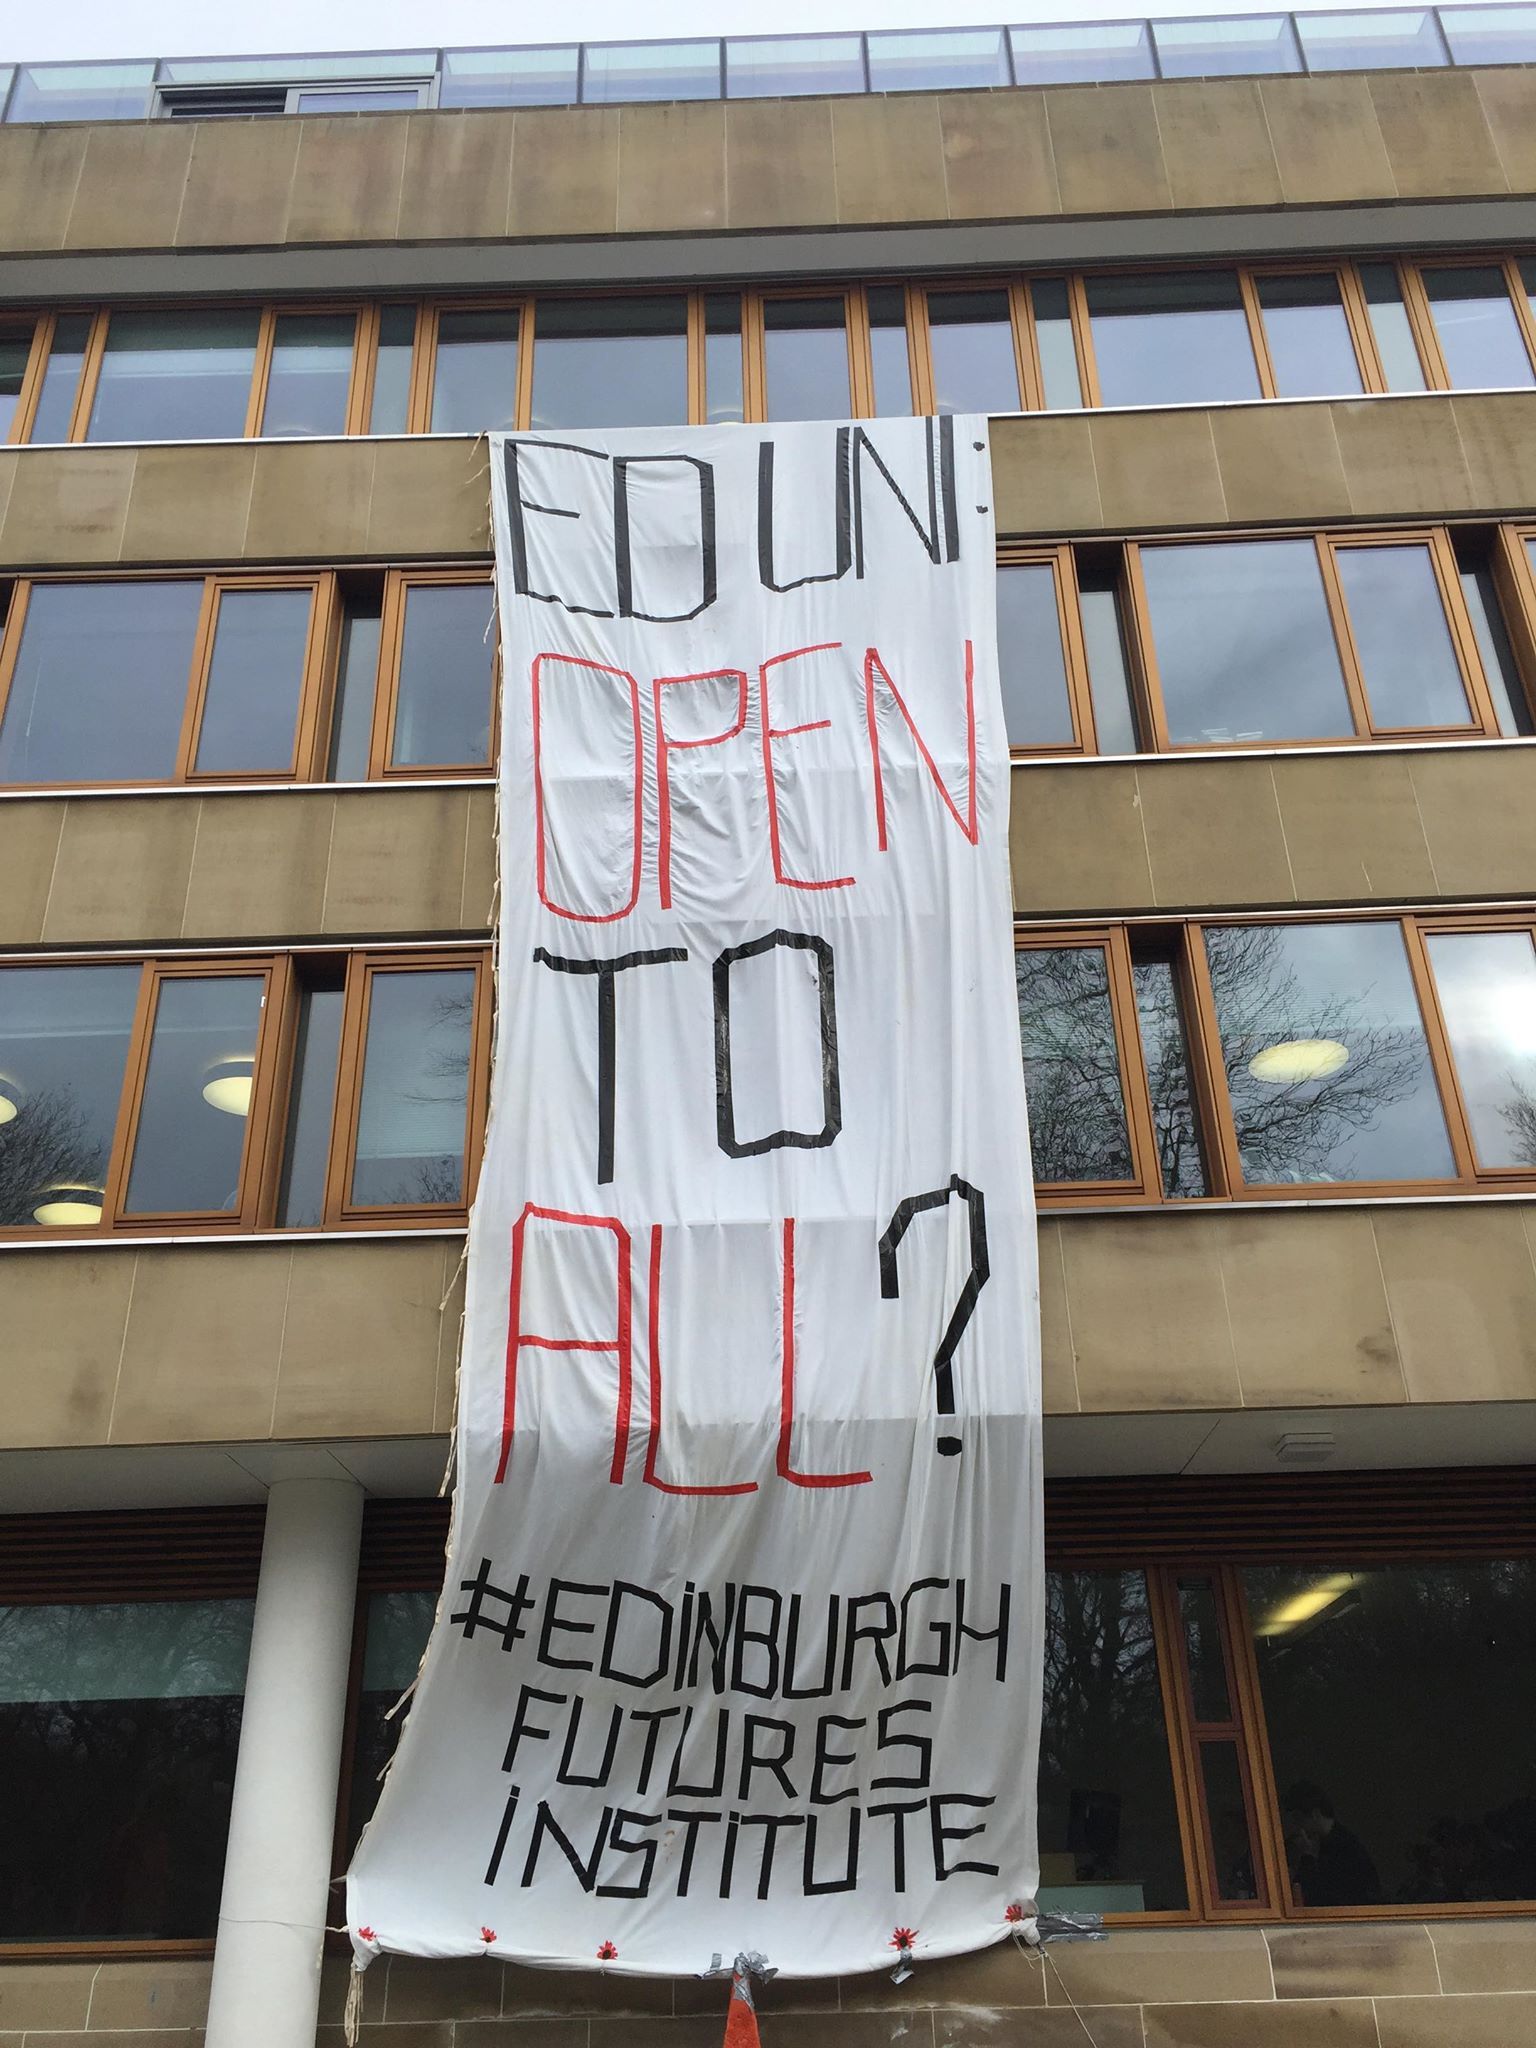 ED UNI:
OPEN
TO
ALL?
#EDINBURGH
FUTURES
INSTITUTE